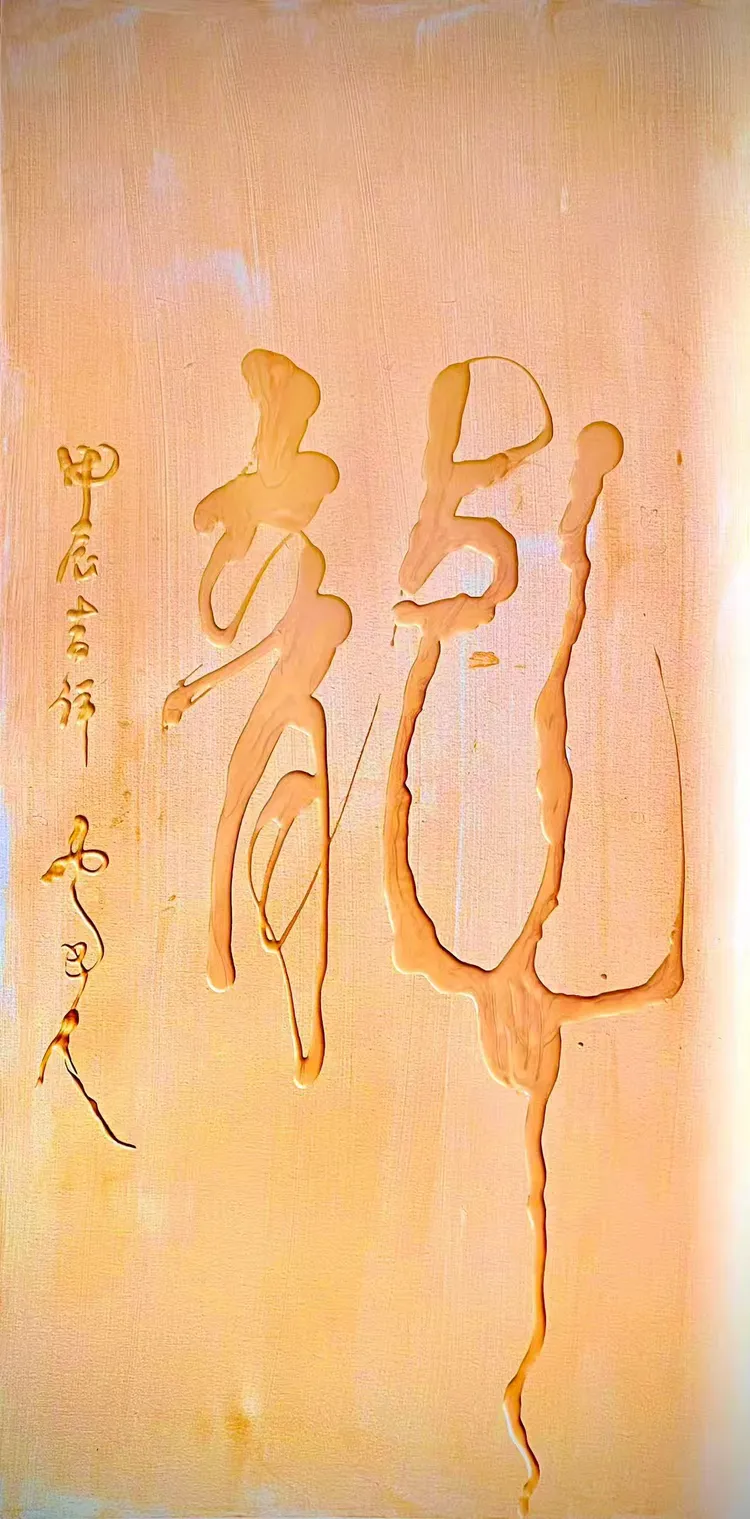 龍
甲辰吉祥